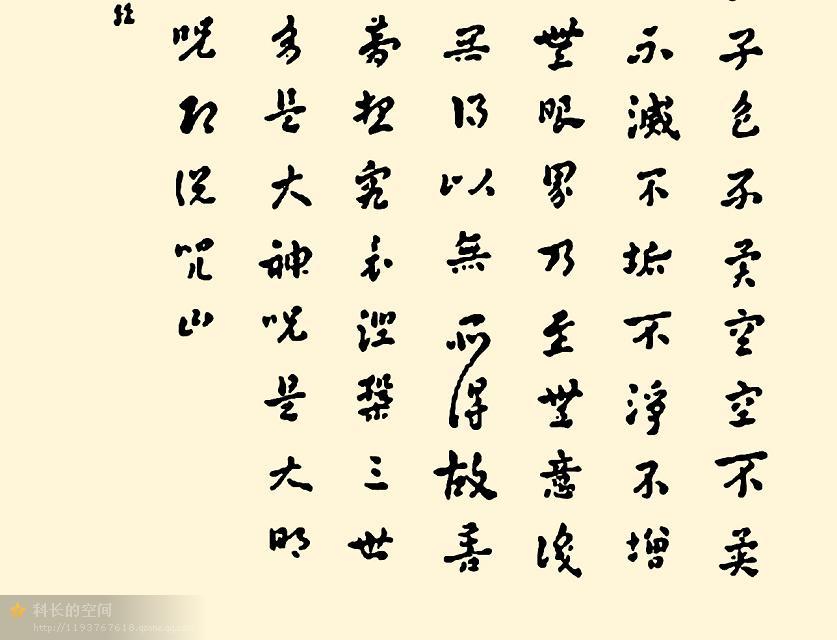 子色不異空空不異
不滅不垢不淨不增
無眼界乃至無意識
無得以無所得故菩
夢想究竟涅槃三世
多是大神咒是大明
咒即說咒曰
經
科长的空间
http://1193767618.qzone.qq.com